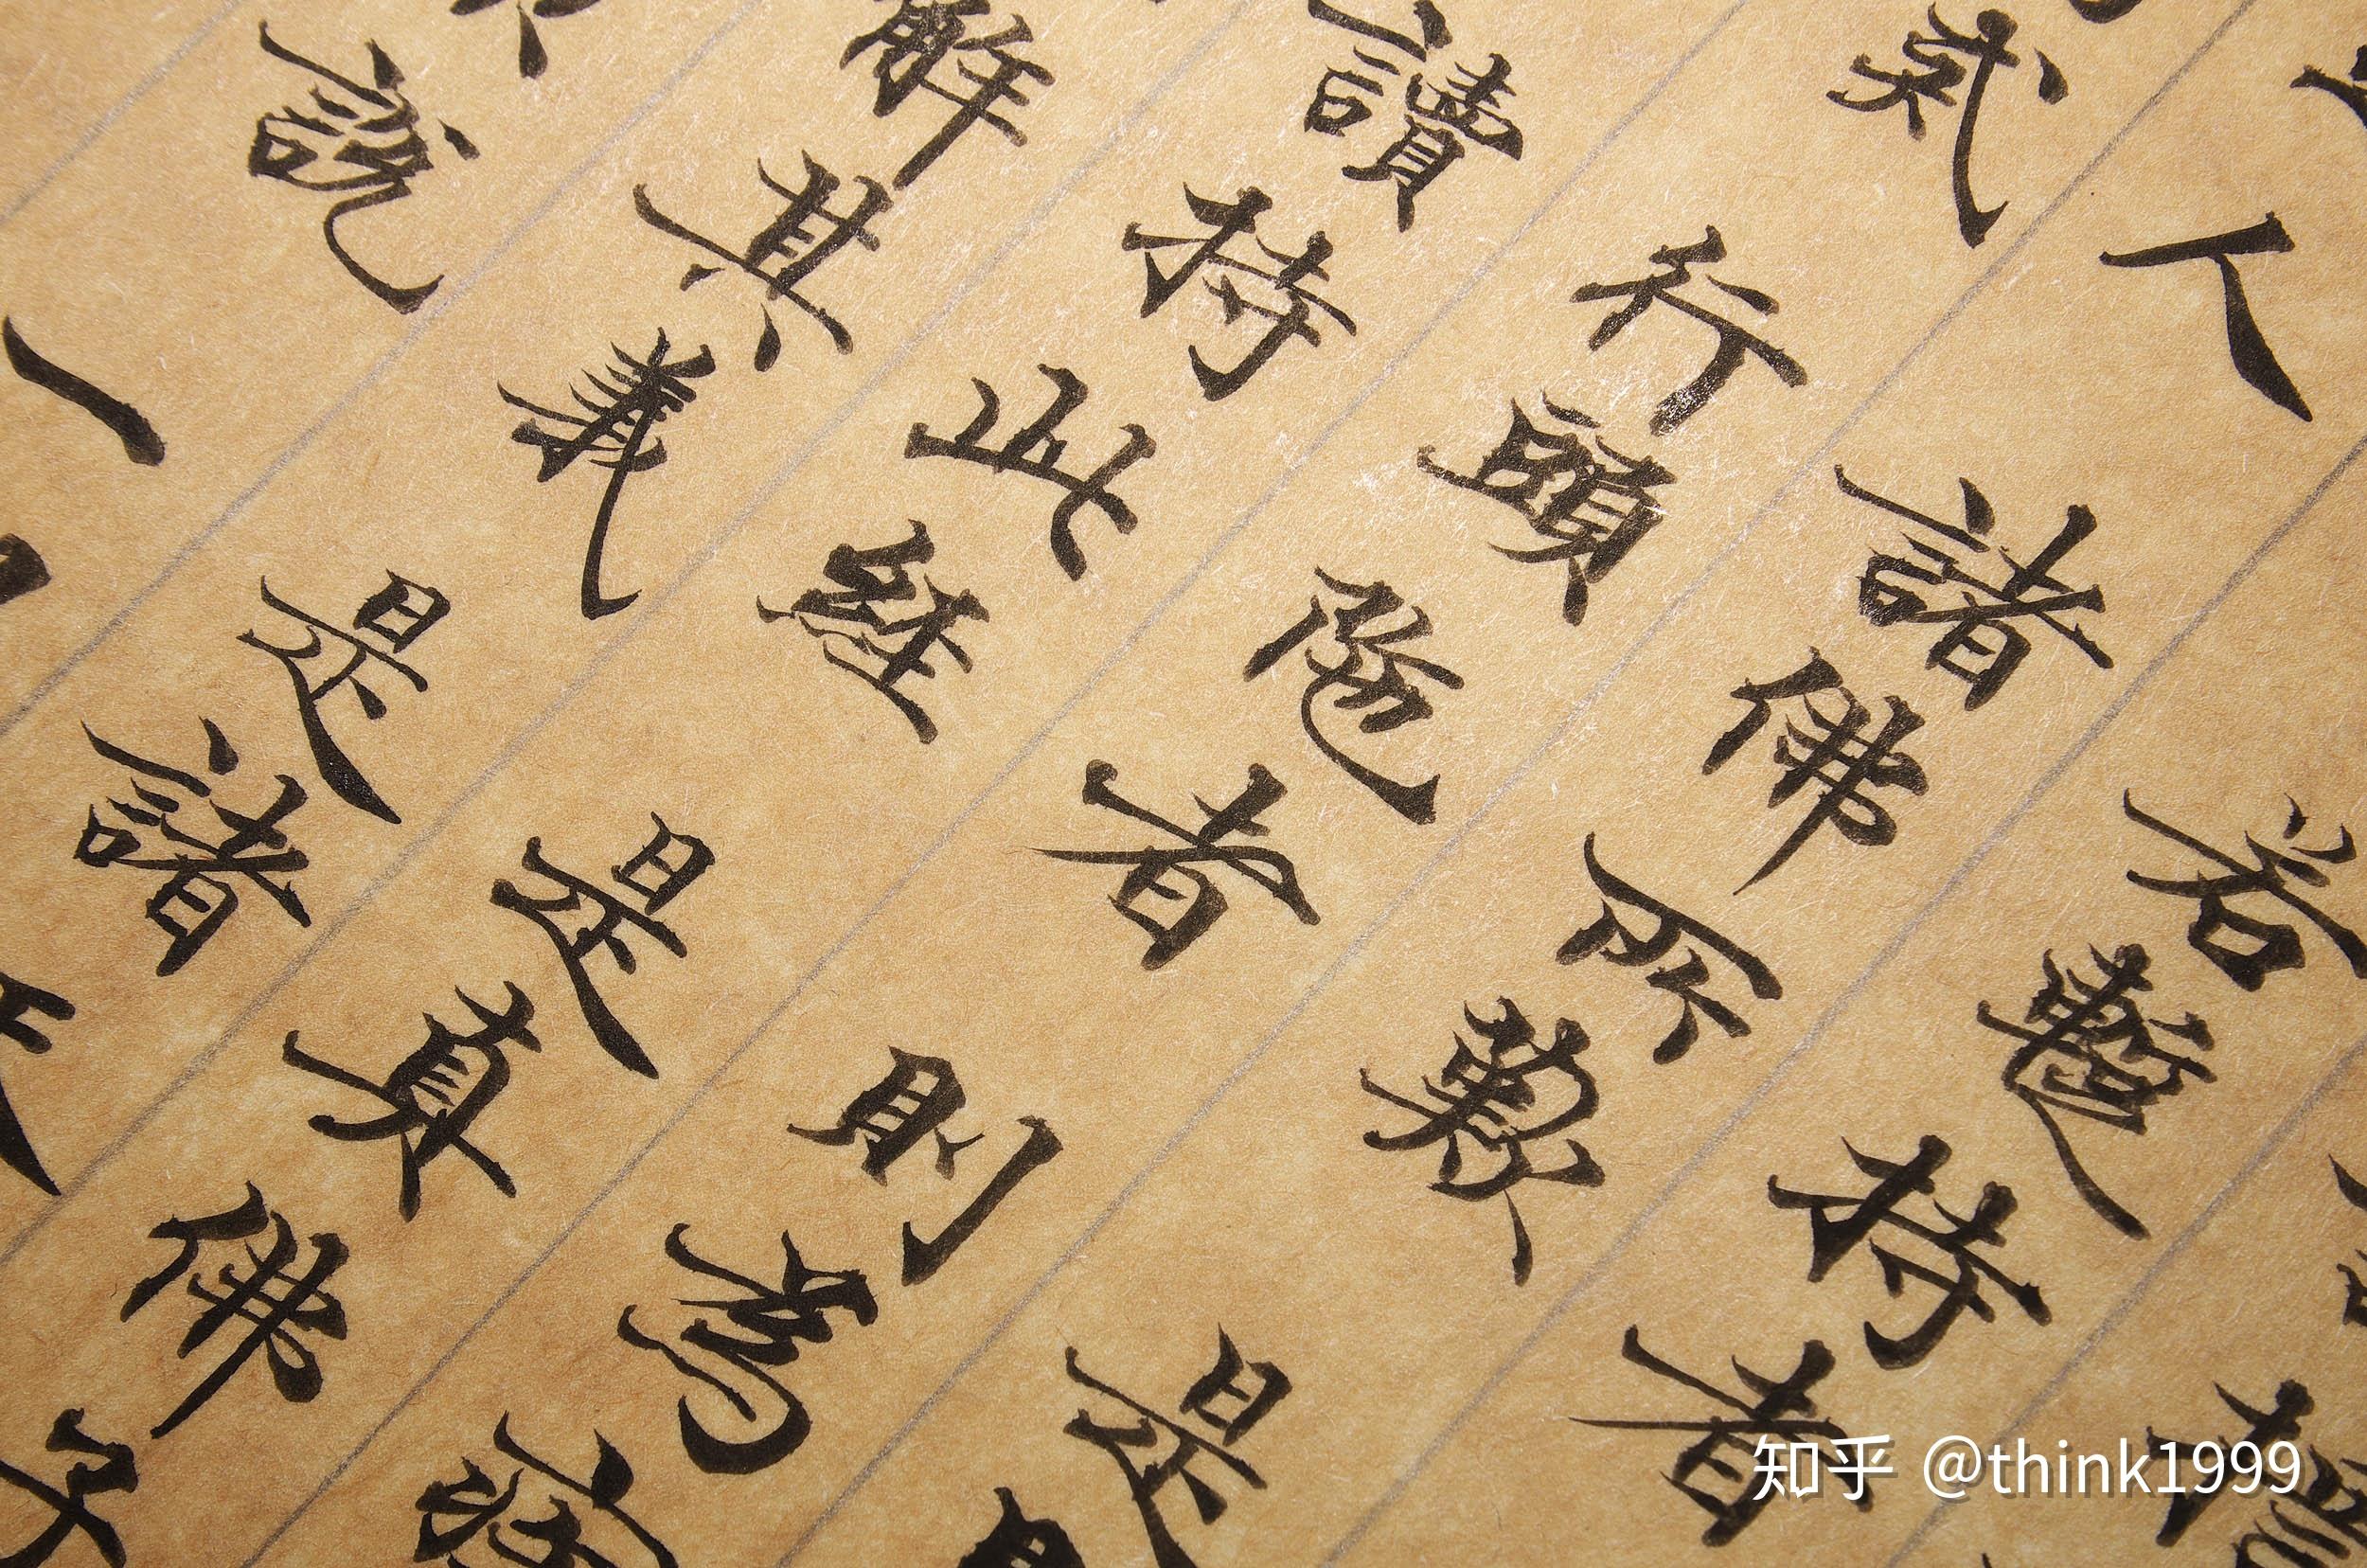 若暫持者
人諸佛所歎是
戒行頭陁者則為疾
讀持此經是真佛子
解其義是諸
說一
知乎 @think1999